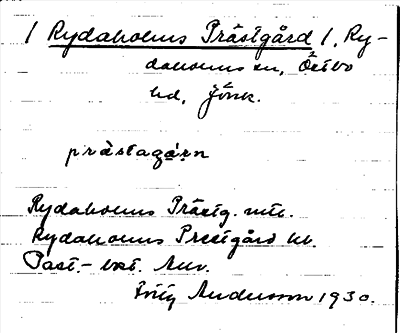 1 Rydaholms Prästgård 1, Ry-
daholms sn, Östbo
hd, Jönk.
prästagạ̈rn
Rydaholms Prästg. mtl.
Rydaholms Prestgård kb.
Past.- bost. Anv.
Fritz Andersson 1930.